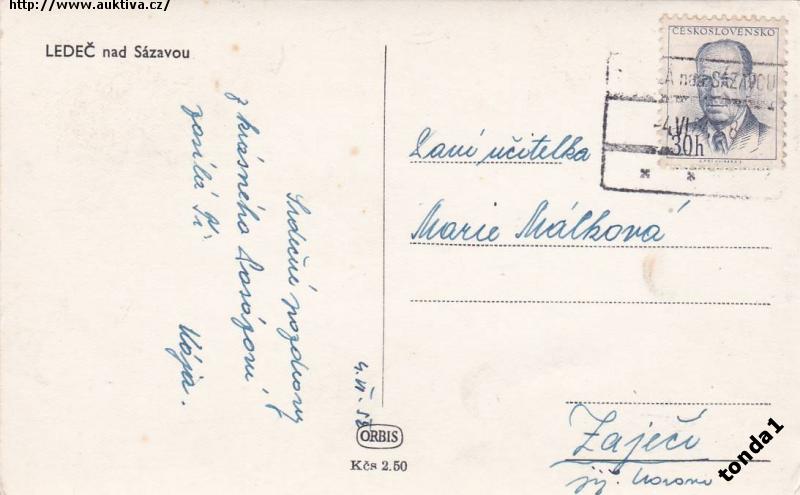 http://www.auktiva.cz/
LEDEČ nad Sázavou
ČESKOSLOVENSKO
nad SÁZAVOU
-4.VI.
30h
Srdečné pozdravy
z krásného Posázaví
zasílá Ti
Kája.
4. VI. 58
Paní učitelka
Marie Málková
Zaječí
již. Morava
ORBIS
Kčs 2.50
tonda1